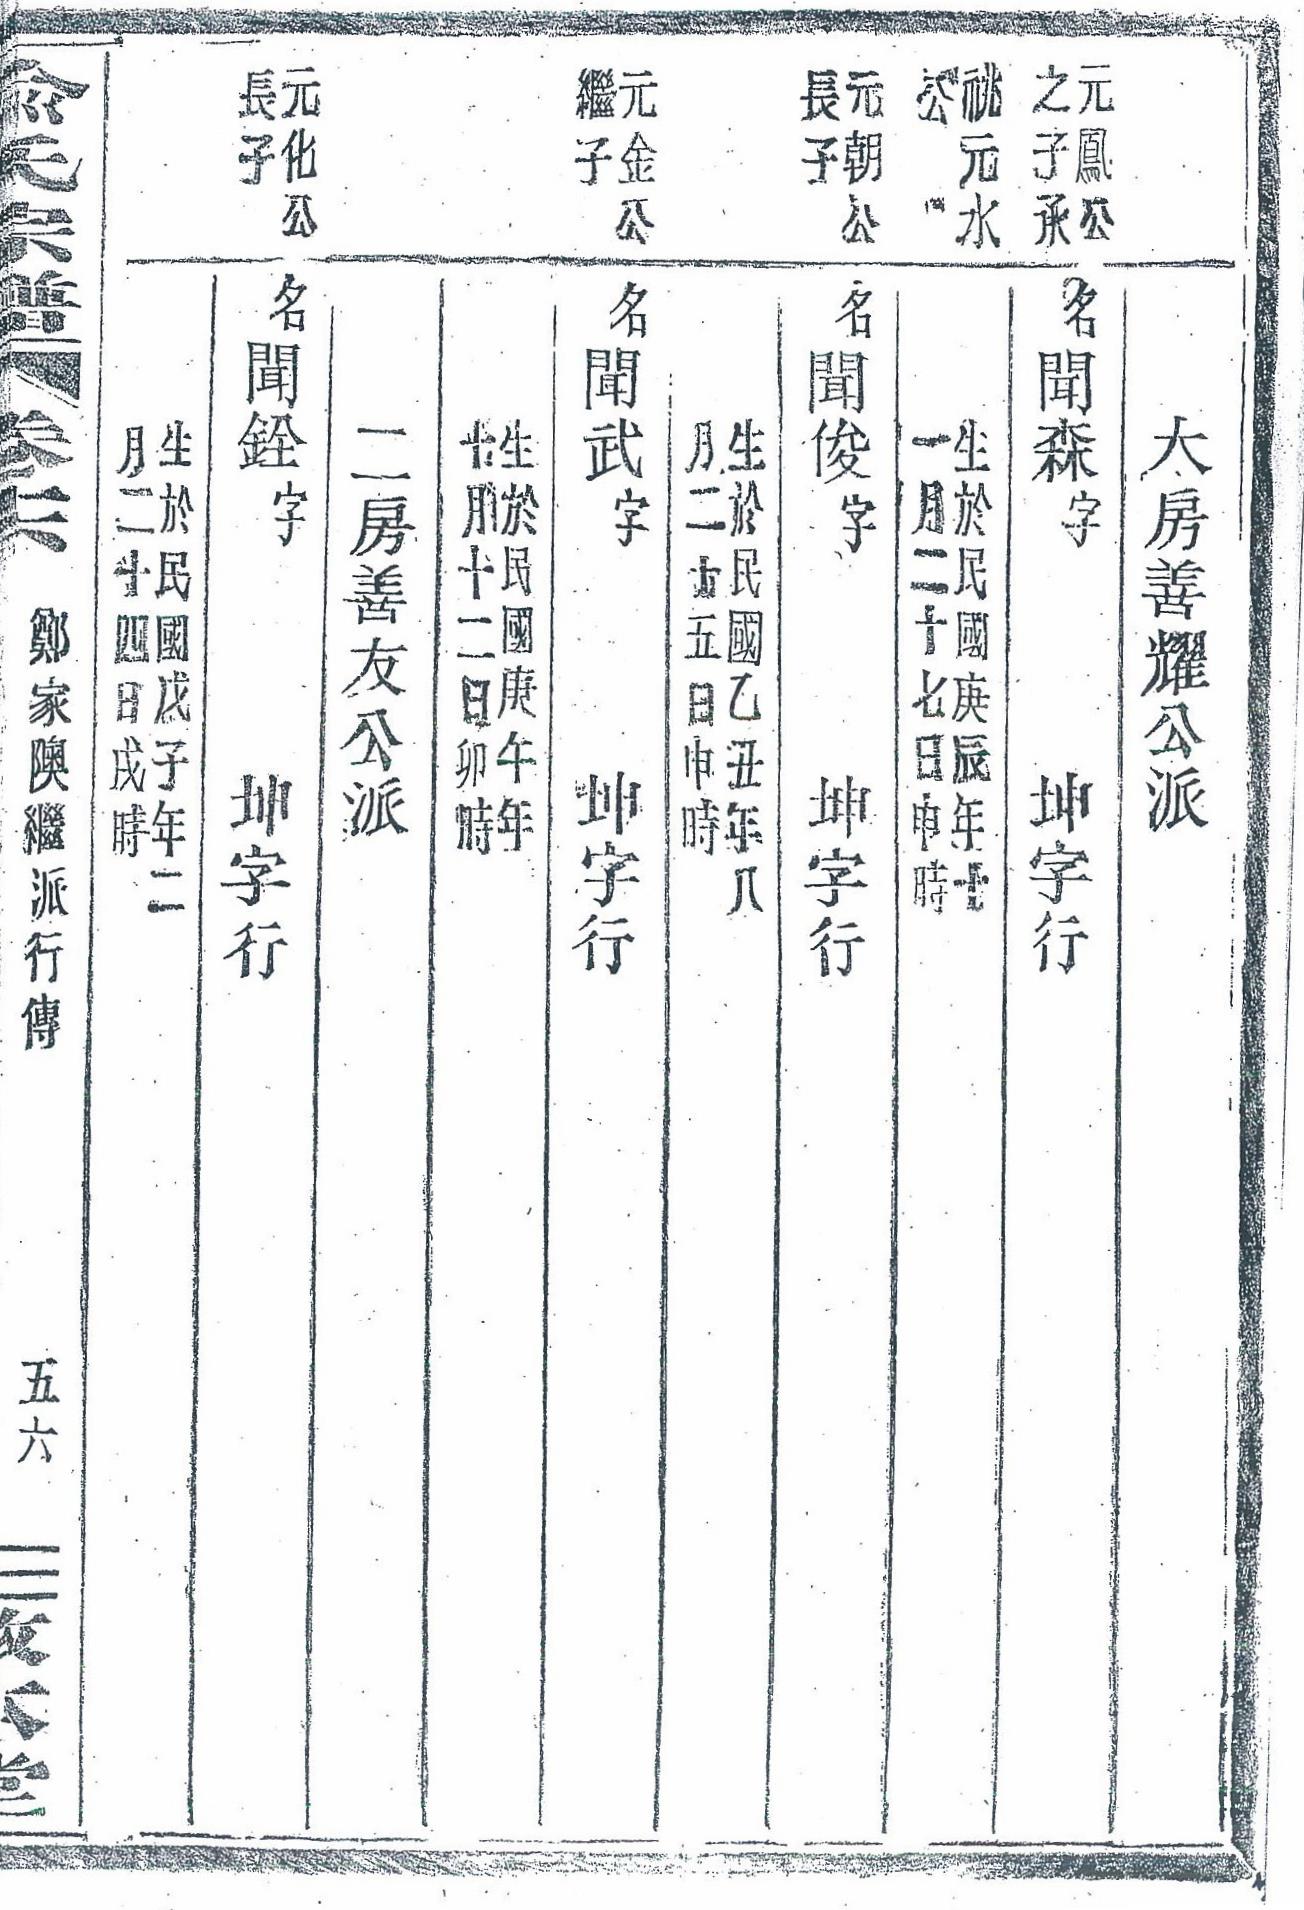 大房善耀公派
元鳳公
之子承
祧元水
公
名聞森字　坤字行
生於民國庚辰年十
一月二十七日申時
元朝公
長子
名聞俊字　坤字行
生於民國乙丑年八
月二十五日申時
元金公
繼子
名聞武字　坤字行
生於民國庚午年
十月十二日卯時
二房善友公派
元化公
長子
名聞銓字　坤字行
生於民國戊子年二
月二十四日戌時
俞氏宗譜　卷六　鄭家隩繼派行傳　五六